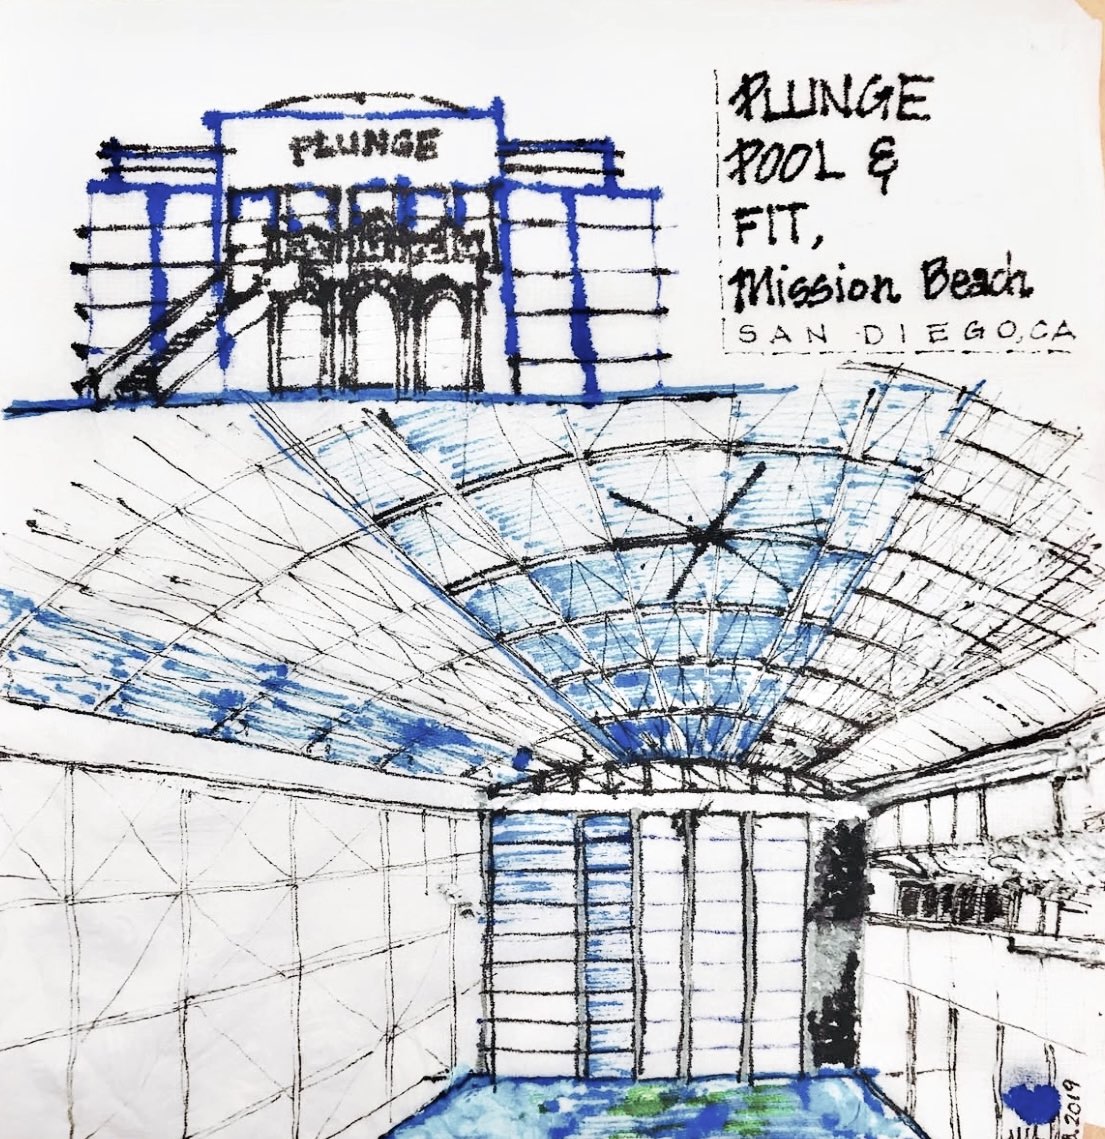 PLUNGE
PLUNGE
POOL &
FIT,
Mission Beach
SAN DIEGO, CA
.2019